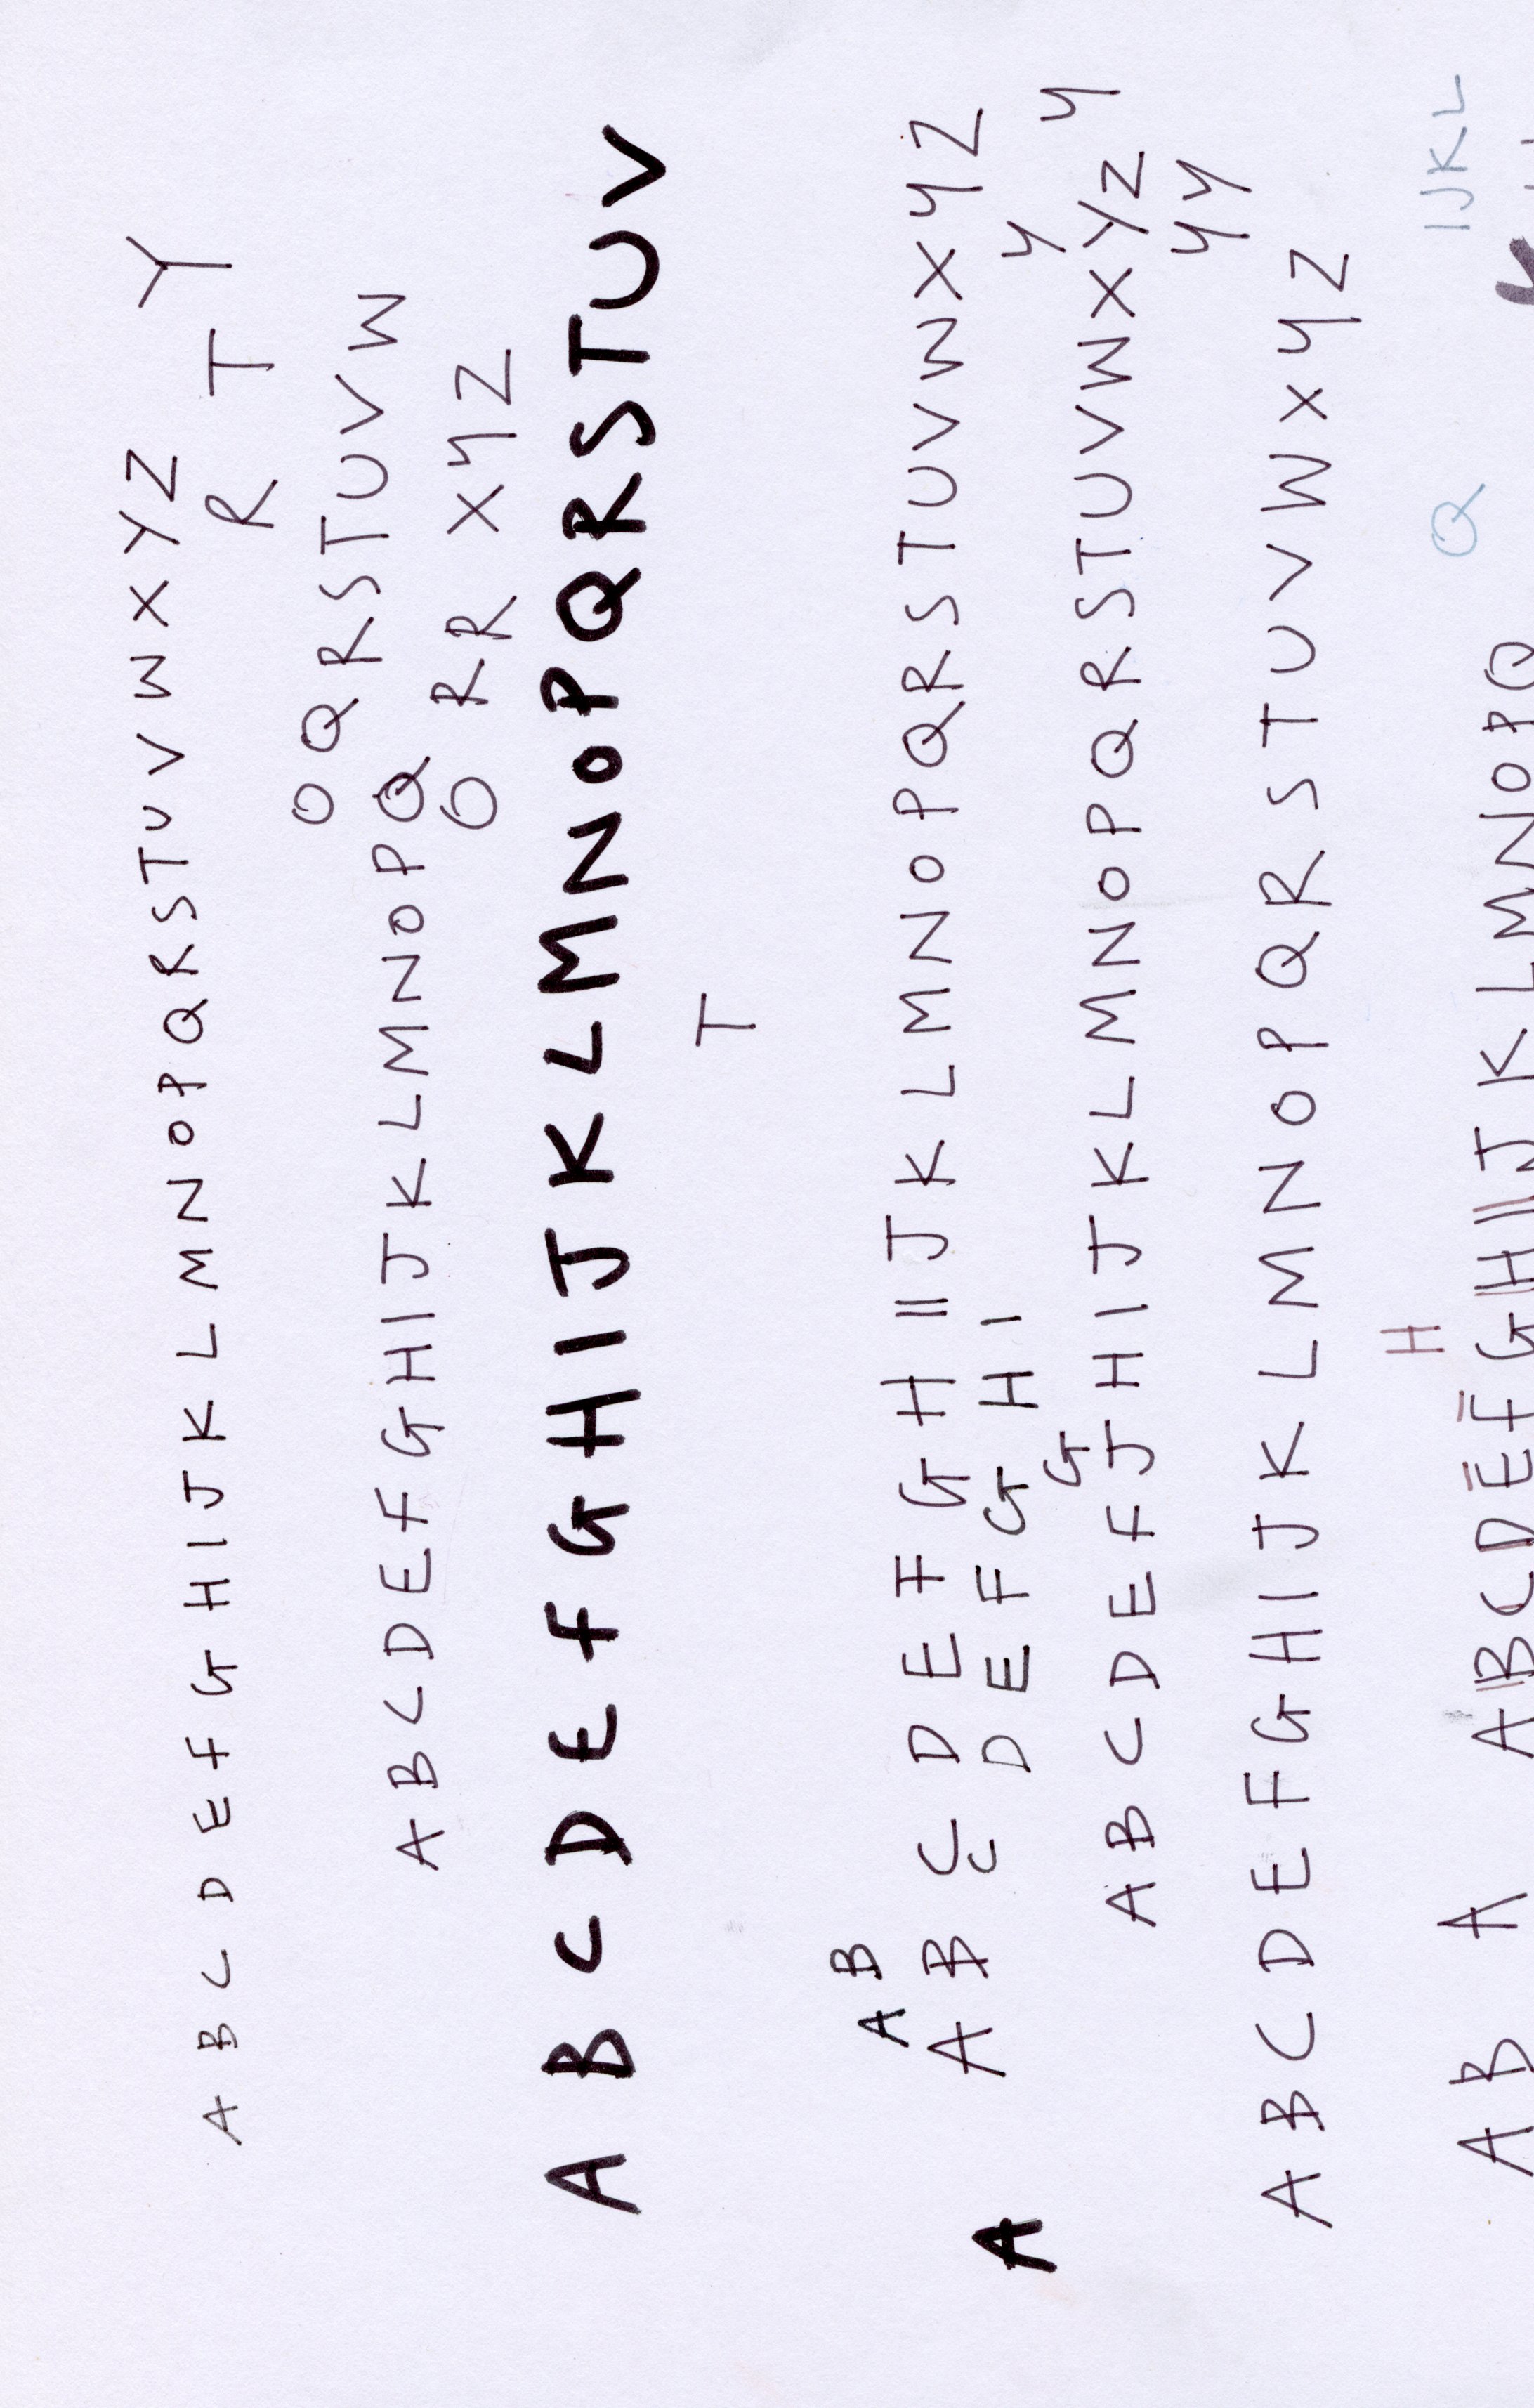 A B C D E F G H I J K L M N O P Q R S T U V W X Y Z Y
R T
O Q R S T U V W
A B C D E F G H I J K L M N O P Q
O R R X Y Z
A B C D E F G H I J K L M N O P Q R S T U V
T
A B
A B C D E F G H I I J K L M N O P Q R S T U V W X Y Z
A C D E F G H I Y
G Y
A B C D E F J H I J K L M N O P Q R S T U V W X Y Z
Y Y
A B C D E F G H I J K L M N O P Q R S T U V W X Y Z
H
A Q I J K L
A B A B C D E F G H I I J K L M N O P Q